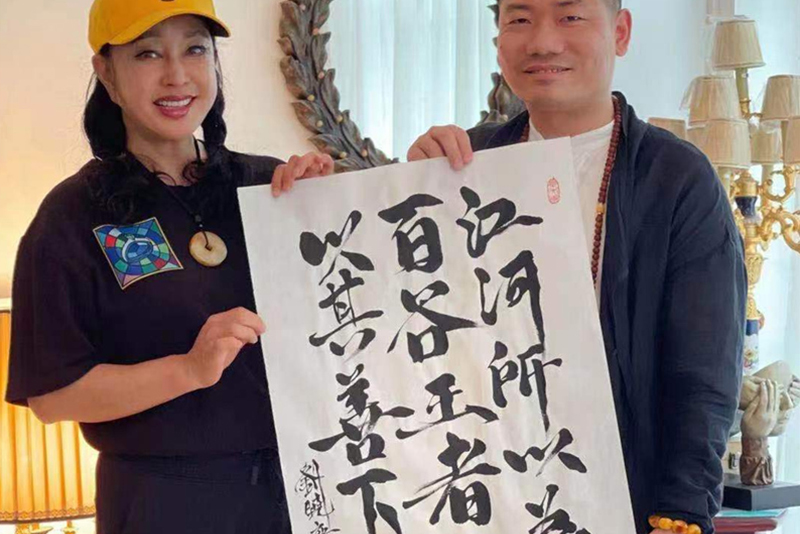 江河所以为
百谷王者
以其善下
劉曉